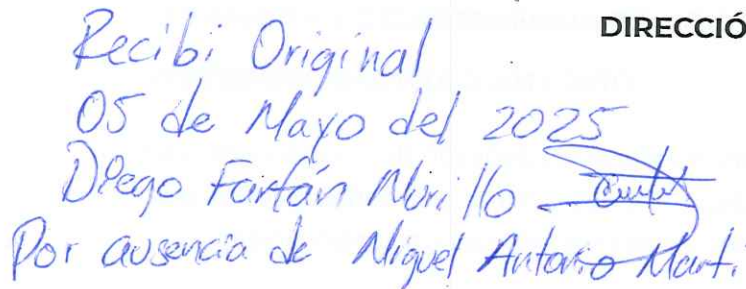 DIRECCIÓ
Recibi Original
05 de Mayo del 2025
Diego Farfán Murillo
Por ausencia de Miguel Antonio Marti